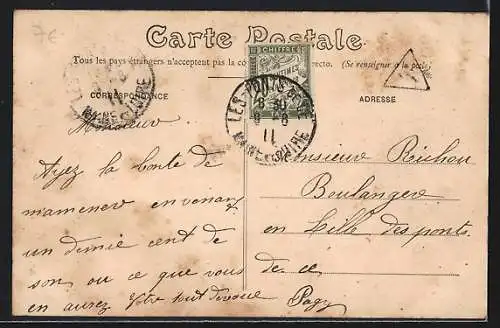 7€
Carte Postale
Tous les pays étrangers n'acceptent pas la correspondance au recto. (Se renseigner à la poste)
CORRESPONDANCE
ADRESSE
CHIFFRE
LES PONTS DE CÉ
8 6
11
MAINE ET LOIRE
Monsieur
Ayez la bonté de
m'amener en venant
un demie cent de
son ou ce que vous
en aurez Votre tout dévoué
Monsieur Richou
Boulanger
en l'ille des ponts
de ce
Pagy